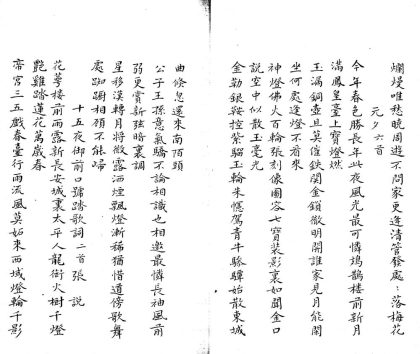 爛熳唯愁曉周遊不問家更逢清管發處〻落梅花
元夕六首
今年春色勝長年此夜風光最可憐鳷鵲樓前新月
滿鳳皇臺上寶燈燃
玉漏銅壺且莫催鐵関金鎖徹明開誰家見月能閒
坐何處逢燈不看來
神燈佛火百輪張刻像圖容七寶裝影裏如聞金口
說空中似散玉毫光
金勒銀鞍控紫騮玉輪朱幰駕青牛驂驔始散東城
曲倏忽還來南陌頭
公子王孫意氣驕不論相識也相邀最憐長袖風前
弱更賞新弦暗裏調
星移漢轉月將微露洒煙飄燈漸稀猶惜道傍歌舞
處踟躕相顧不能歸
十五夜御前口號踏歌詞二首張說
花萼樓前雨露新長安城裏太平人龍銜火樹千燈
艷雞踏蓮花萬歲春
帝宮三五戲春臺行雨流風莫妬來西域燈輪千影